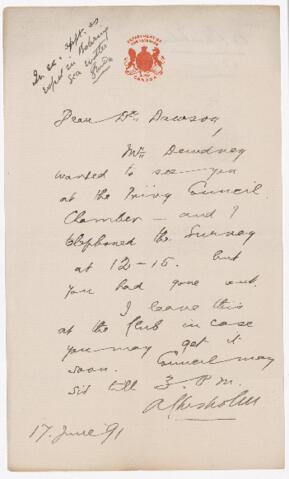 In re. appt. as
expert in Behring
Sea with
DEPARTMENT OF
THE INTERIOR
CANADA
Dear Dr. Dawson,
Mr. Dewdney
wanted to see you
at the Privy Council
Chamber — and I
telephoned the Survey
at 12-15. but
you had gone out.
I leave this
at the Club in case
you may get it
soon. Council may
sit till 3. P.m.
A Chisholm
17. June 91